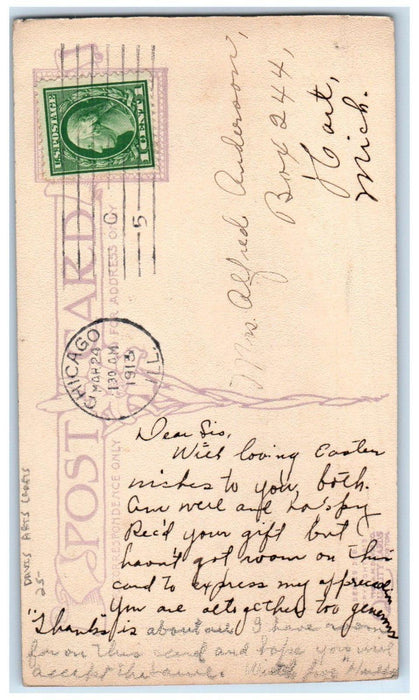 U.S. POSTAGE
1 CENT 1
CHICAGO
ILL.
MAR 24
1 30 AM
1913
C
5
POST CARD
FOR ADDRESS ONLY
CORRESPONDENCE ONLY
Mrs. Alfred Anderson,
Box 244,
Hart,
Mich.
Dear Sis,
With loving Easter
wishes to you both.
Am well and happy
Rec'd your gift but
havn't got room on this
card to express my appreciation
You are altogether too generous
"Thanks" is about all I have room
for on this card and hope you will
accept the same. With love
25-